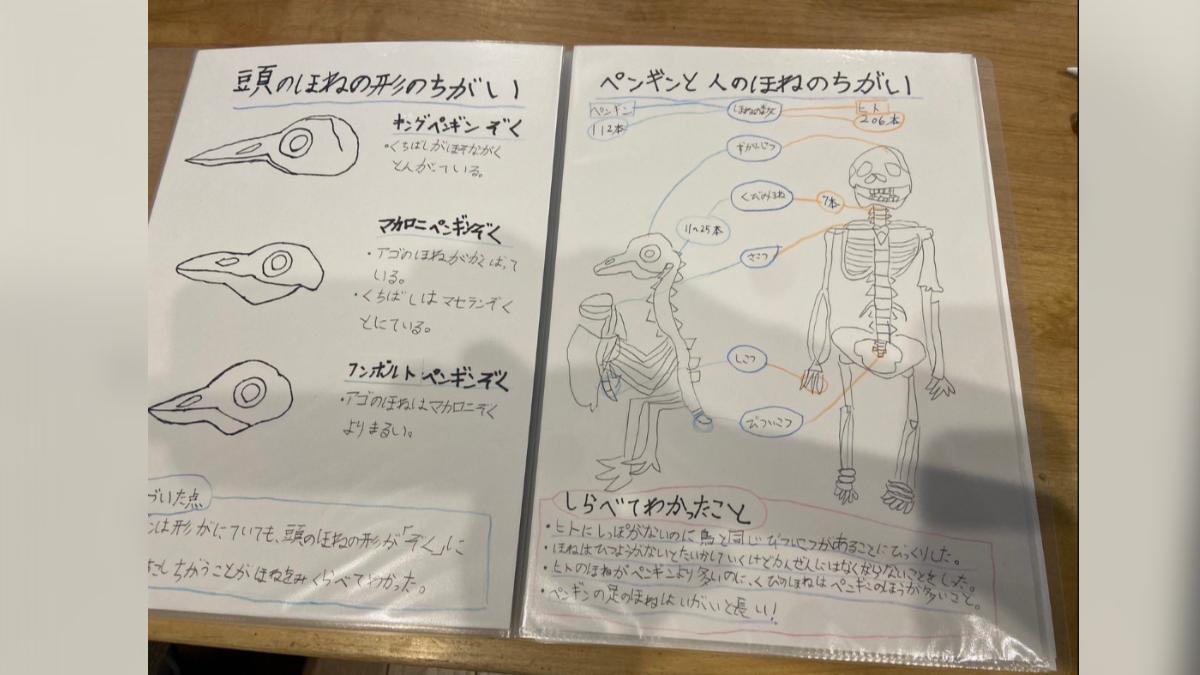 頭のほねの形のちがい
キングペンギンぞく
・くちばしがほそながく
とんがっている。
マカロニペンギンぞく
・アゴのほねがかくばって
いる。
・くちばしはマゼランぞく
とにている。
フンボルトペンギンぞく
・アゴのほねはマカロニぞく
よりまるい。
づいた点
は形がにていても、頭のほねの形が「ぞく」に
ちがうことがほねをみくらべてわかった。
ペンギンと人のほねのちがい
ペンギン
ほねの数
ヒト
112本
206本
ずがいこつ
くびのほね
7本
11〜25本
さこつ
しこつ
びついこつ
しらべてわかったこと
・ヒトにしっぽがないのに鳥と同じびついこつがあることにびっくりした。
・ほねはひつようがないとたいかしていくけどかんぜんにはなくならないことをした。
・ヒトのほねがペンギンより多いのに、くびのほねはペンギンのほうが多いこと。
・ペンギンの足のほねはいがいと長い!